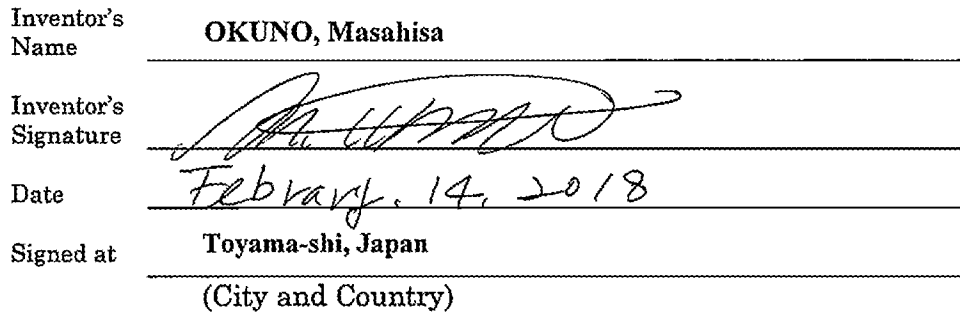 Inventor's
Name OKUNO, Masahisa
Inventor's
Signature
Date Febrary. 14, 2018
Signed at Toyama-shi, Japan
(City and Country)